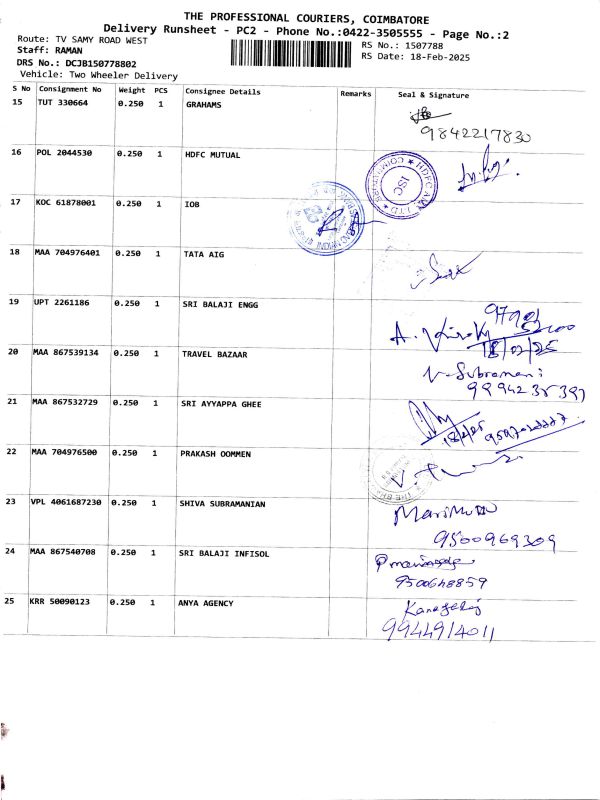 THE PROFESSIONAL COURIERS, COIMBATORE
Delivery Runsheet - PC2 - Phone No.:0422-3505555 - Page No.:2
Route: TV SAMY ROAD WEST
RS No.: 1507788
Staff: RAMAN
RS Date: 18-Feb-2025
DRS No.: DCJB150778802
Vehicle: Two Wheeler Delivery
S No Consignment No Weight PCS Consignee Details Remarks Seal & Signature
15 TUT 330664 0.250 1 GRAHAMS
9842217830
16 POL 2044530 0.250 1 HDFC MUTUAL
HDFC AMC LTD ★ COIMBATORE ★
ISC
17 KOC 61878001 0.250 1 IOB
18 MAA 704976401 0.250 1 TATA AIG
19 UPT 2261186 0.250 1 SRI BALAJI ENGG
18/02/25
20 MAA 867539134 0.250 1 TRAVEL BAZAAR
V. Subramani
9994235397
21 MAA 867532729 0.250 1 SRI AYYAPPA GHEE
22 MAA 704976500 0.250 1 PRAKASH OOMMEN
23 VPL 4061687230 0.250 1 SHIVA SUBRAMANIAN
9500969309
24 MAA 867540708 0.250 1 SRI BALAJI INFISOL
9500648859
25 KRR 50090123 0.250 1 ANYA AGENCY
9944914011